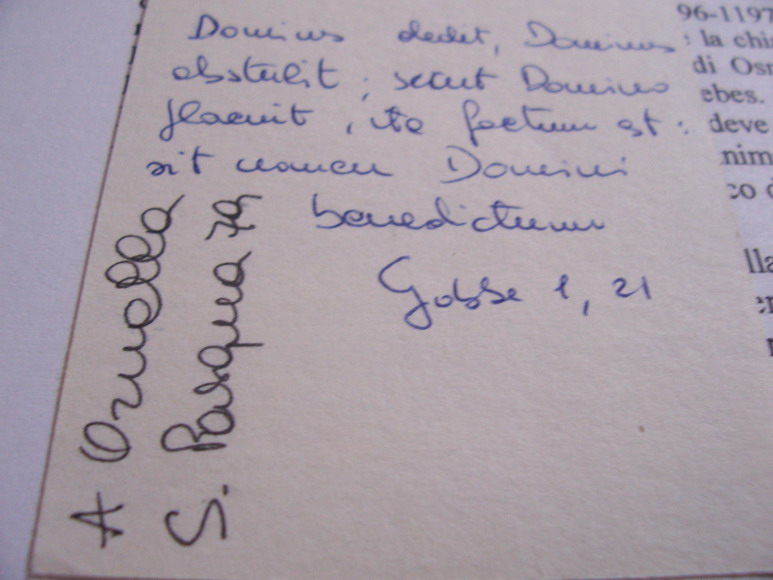 Dominus dedit, Dominus
abstulit; sicut Domino
placuit, ita factum est:
sit nomen Domini
benedictum
Gobbe 1, 21
A Ornella
S. Pasqua 79
96-1197
: la chi
di Osr
ebes.
deve
nim
co
lla